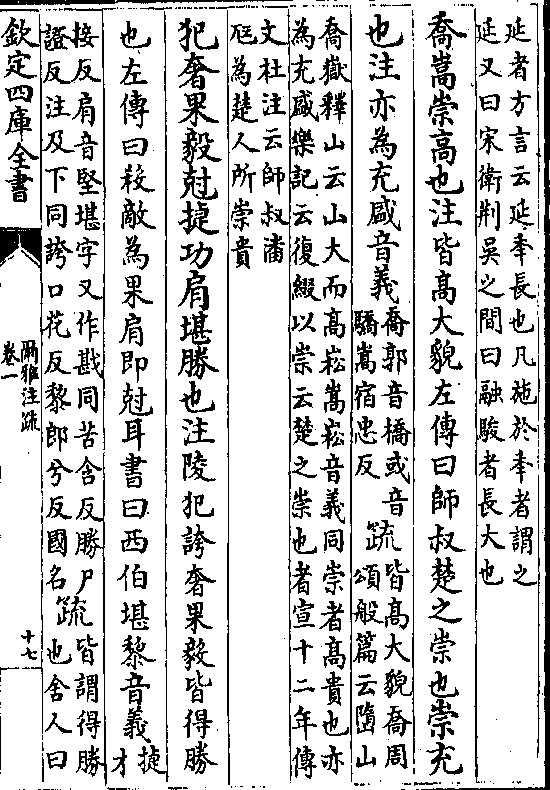 延者方言云延年長也凡施於年者謂之
延又曰宋衛荆吳之間曰融駿者長大也
喬嵩崇高也注皆高大貌左傳曰師叔楚之崇也崇充
也注亦為充盛音義喬郭音橋或音
驕嵩宿忠反疏皆高大貌喬周
頌般篇云隨山
喬嶽釋山云山大而高崧嵩崧音義同崇者高貴也亦
為充盛樂記云復綴以崇云楚之崇也者宣十二年傳
文杜注云師叔潘
尫為楚人所崇貴
犯奢果毅尅捷功肩堪勝也注陵犯誇奢果毅皆得勝
也左傳曰殺敵為果肩即尅耳書曰西伯堪黎音義捷
才
接反肩音堅堪字又作戡同苦含反勝尸
證反注及下同誇口花反黎郎兮反國名疏皆謂得勝
也舍人曰
欽定四庫全書
爾雅注疏
卷一
十七